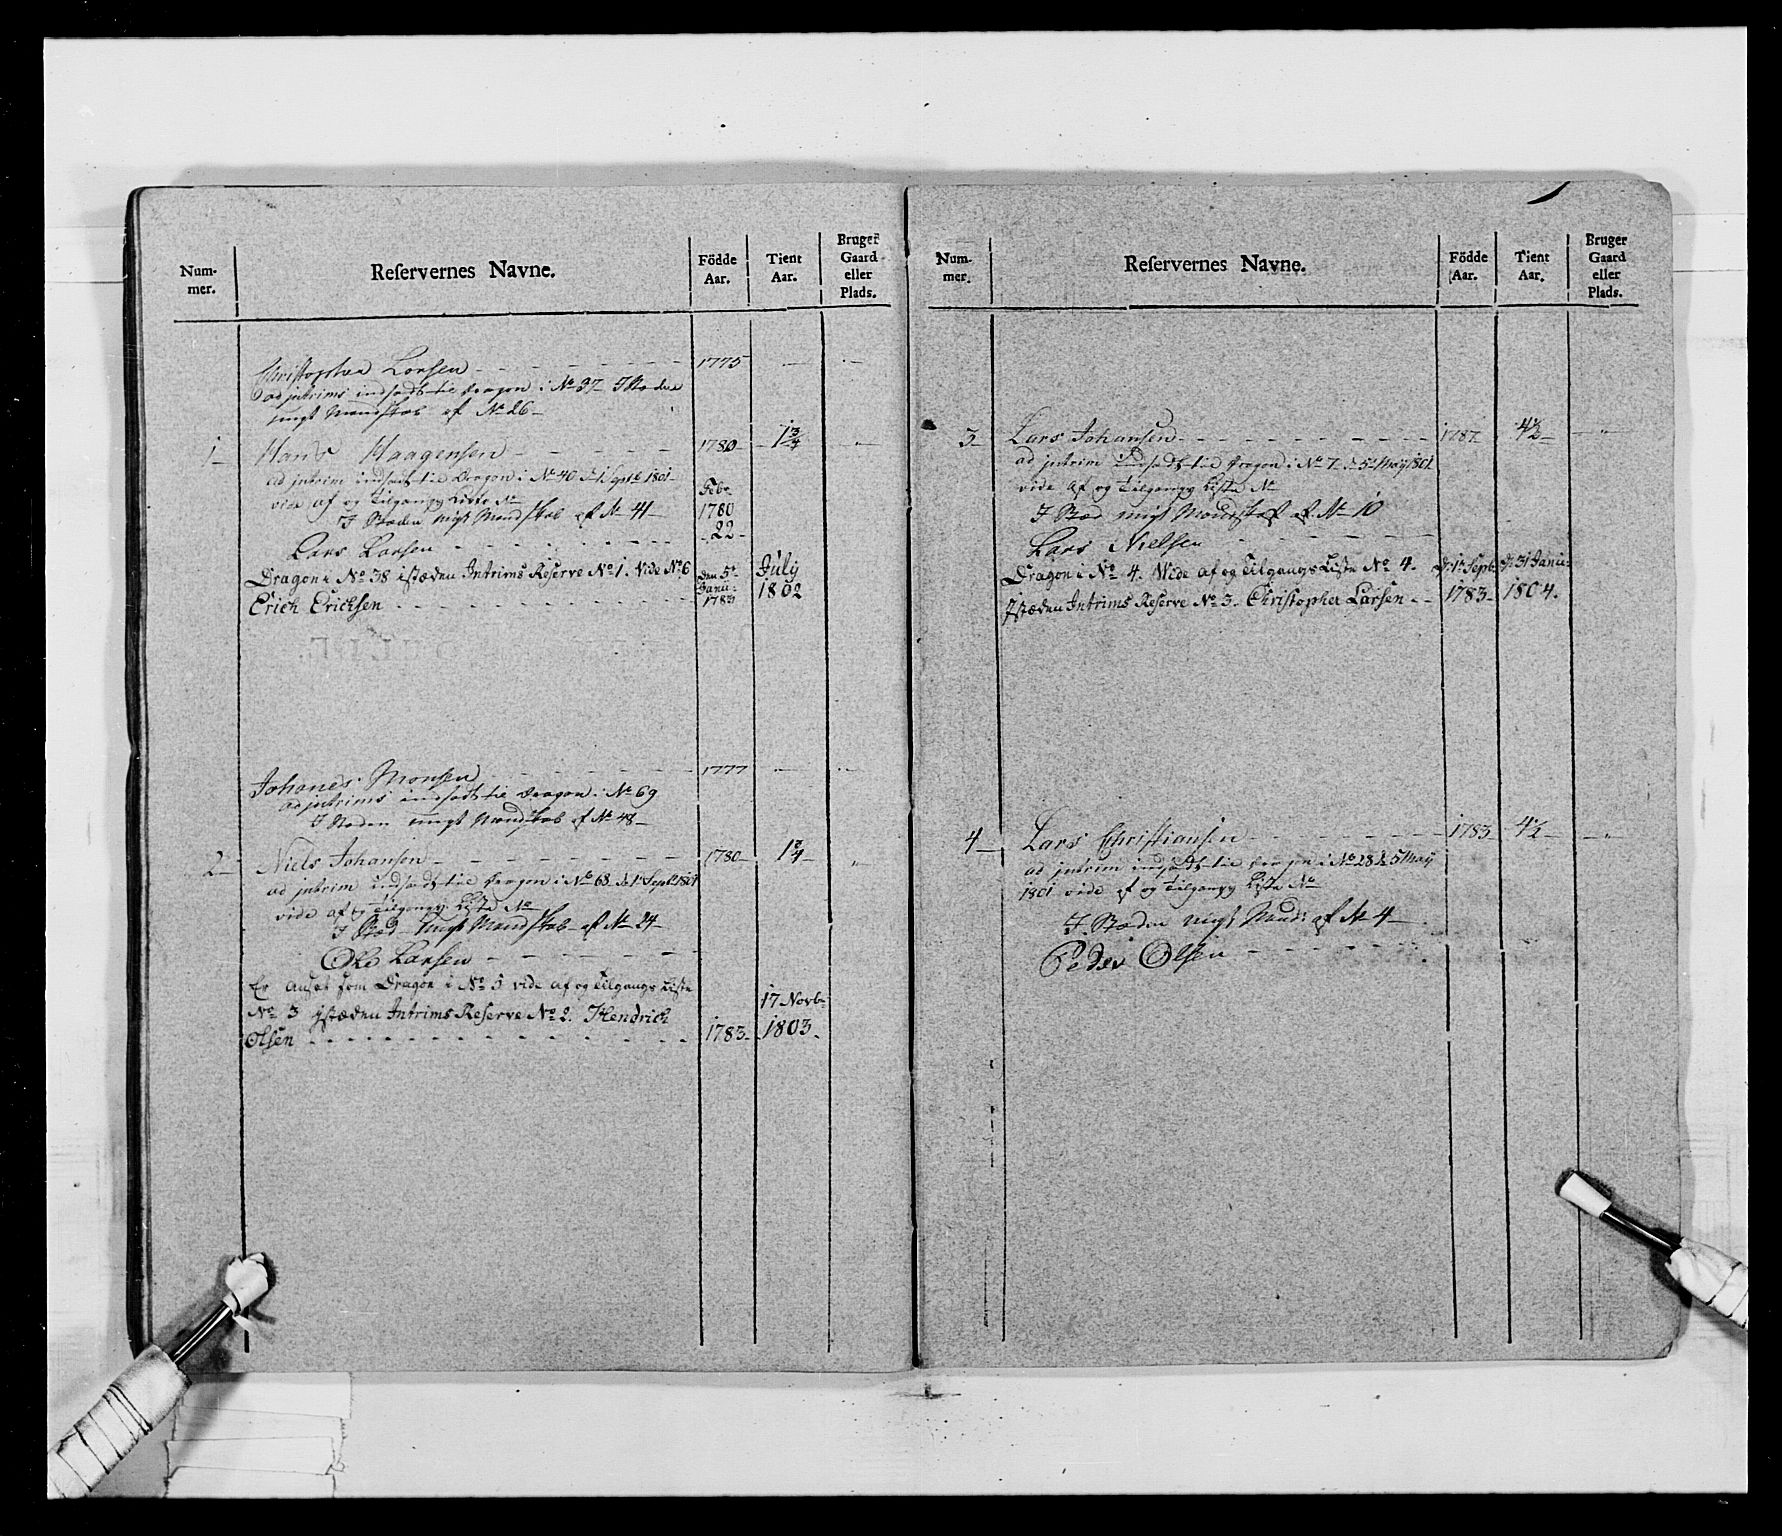 Num-
mer.
Reservernes Navne.
Födde
Aar.
Tient
Aar.
Bruger
Gaard
eller
Plads.
Christopher Larsen - - - - - - 1775 - -
ad intrims indsadt til Dragon i No 37 I Steden
nygt Mandskab af No 26 -
1 - Hans Haagensen - - - - - 1780 - 1 3/4 - "
ad intrim indsadt til Dragon i No 40 d 1 Septb 1801 -
vide af og Tilgangs Liste No
I Steden nygt Mandskab af No 41 -
Febr
1780
22 -
Lars Larsen - - - - - -
Dragon i No 38 istæden Intrims Reserve No 1. Vide No 6
Erich Erichsen - - - - - - - - - -
den 5te
Janu:
1783
July
1802
Johanes Monsen - - - - - - 1777 - -
ad intrims indsadt til Dragon i No 69
I Steden nygt Mandskab af No 48 -
2 - Niels Johansen - - - - - - - 1780 - 1 3/4 - "
ad intrim indsadt til Dragon i No 68 d 1 Septb 1801
vide af og Tilgangs Liste No
I Sted nygt Mandskab af No 24 -
Ole Larsen - - - - - -
Er ansat som Dragon i No 5 vide af og Tilgangs Liste
No 3 istæden Intrims Reserve No 2. Hendrich
Olsen - - - - - - - - - - - 1783 -
17 Novb
1803 -
Num-
mer.
Reservernes Navne.
Födde
Aar.
Tient
Aar.
Bruger
Gaard
eller
Plads.
3 - Lars Johansen - - - - - - - - 1787 - 4 1/2 - "
ad intrim indsadt til Dragon i No 7 d 5te May 1801
vide af og Tilgangs Liste No
I Sted nygt Mandskab af No 10
Lars Nielsen - - - - - -
Dragon i No 4. Vide af og Tilgangs Liste No 4. d: 1te Septb: d: 31 Janu:
Istæden Intrims Reserve No 3. Christopher Larsen - - 1783 - 1804.
4 - Lars Christiansen - - - - - - 1783 4 1/2 - "
ad intrim indsadt til Dragon i No 28 d 5 May
1801 vide af og Tilgangs Liste No
I Steden nygt Mand: af No 4 -
Peder Olsen - - - - - -